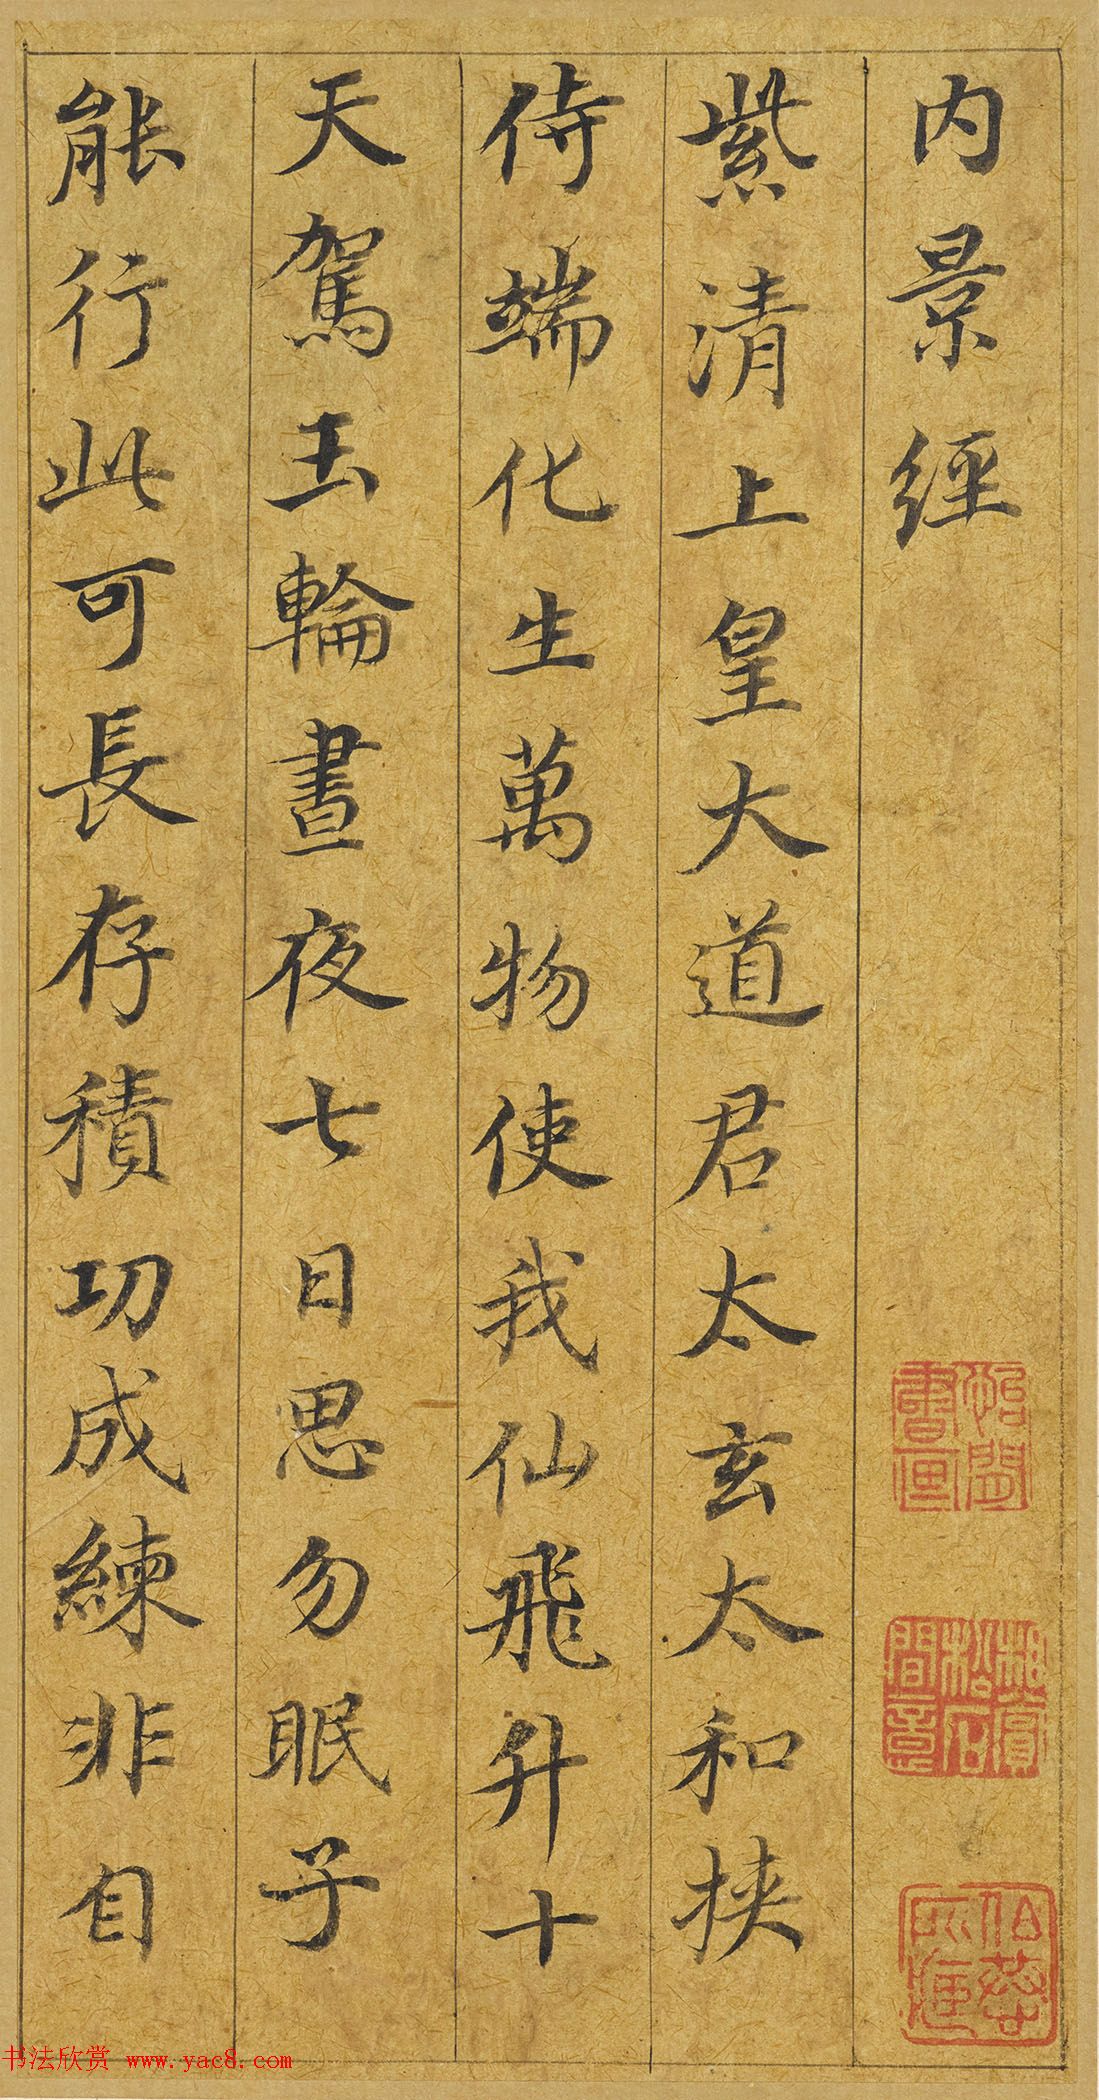 内景經
紫清上皇大道君太玄太和挾
侍端化生萬物使我仙飛升十
天駕玉輪晝夜七日思勿眠子
能行此可長存積功成練非自
书法欣赏 www.yac8.com